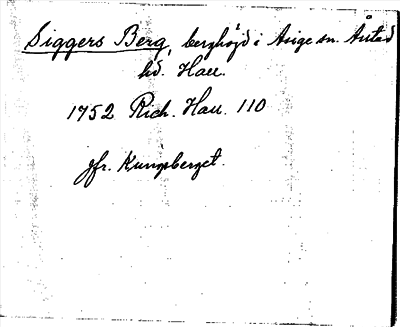 Siggers Berg, berghöjd i Asige sn. Årstad
hd. Hall.
1752 Rich. Hall. 110
jfr. Kungsberget.